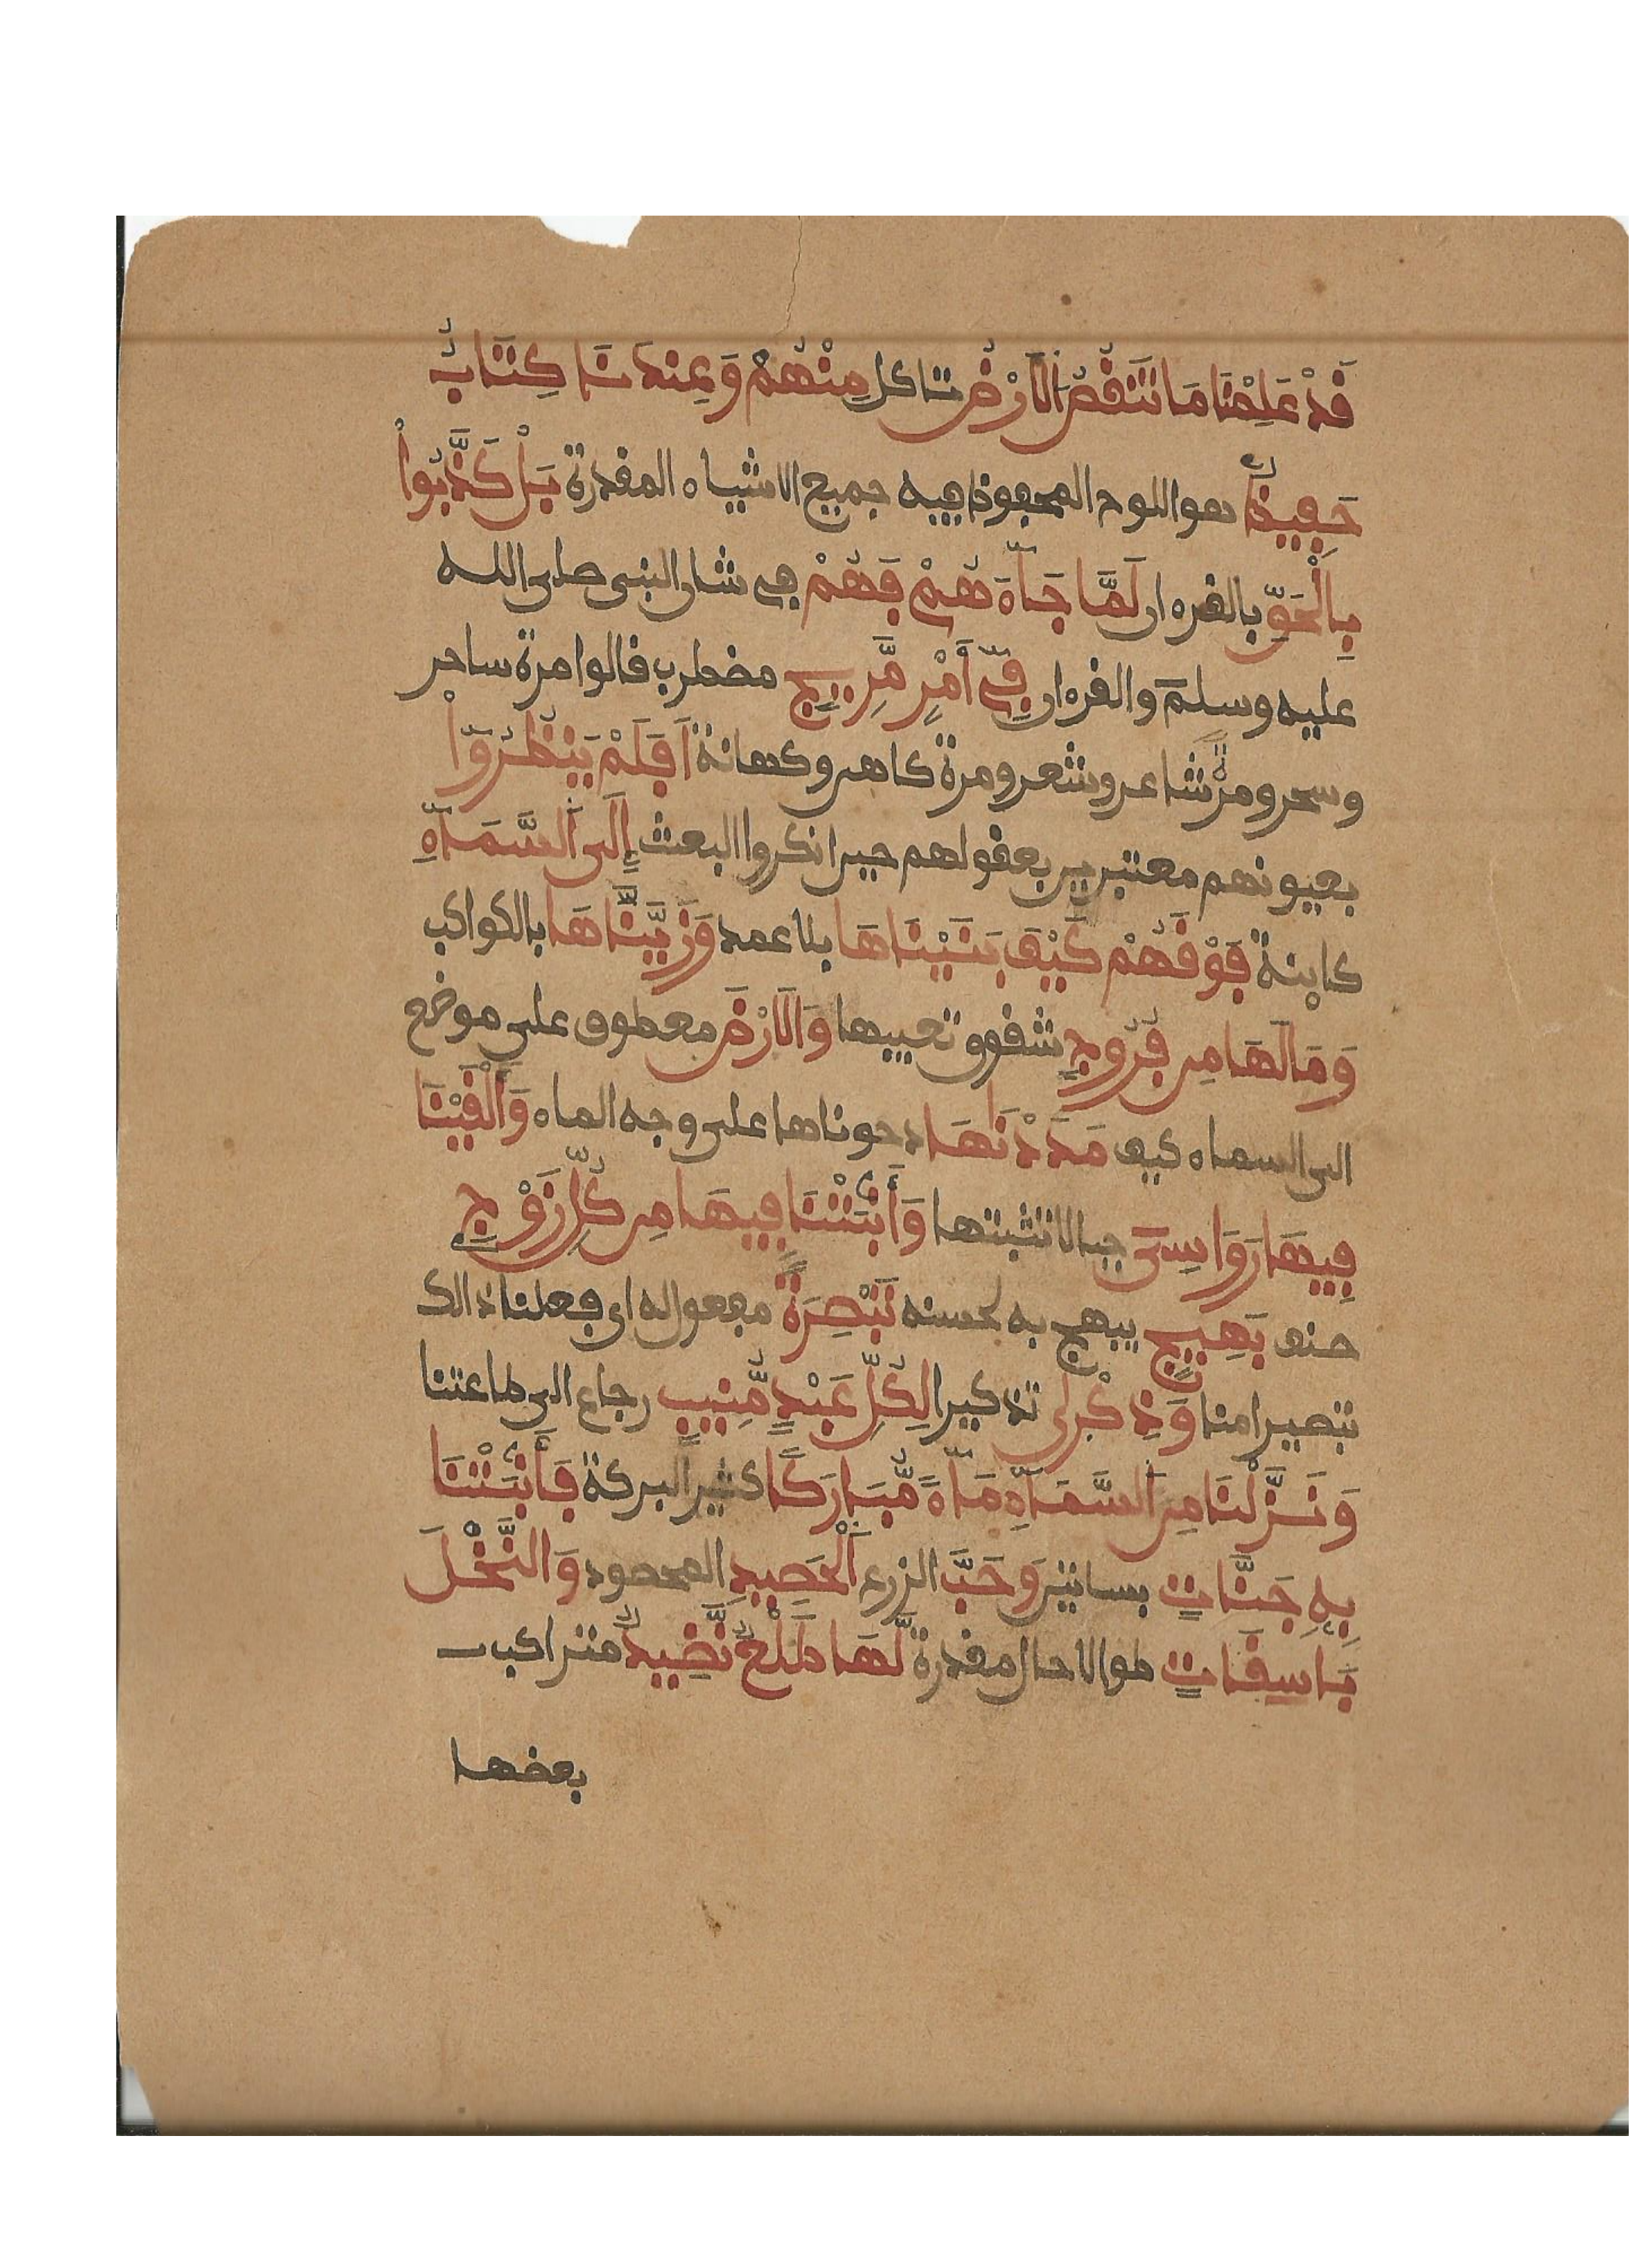 قَدْ عَلِمْنَا مَا تَنقُصُ الَارْضُ تاكل مِنْهُمْ وَعِندَنَا كِتَابٌ
حَفِيظٌ هو اللوح المحفوظ فيه جميع الاشياء المقدرة بَلْ كَذَّبُواْ
بِالْحَقِّ بالقرءان لَمَّا جَآءَهُمْ فَهُمْ في شان النبي صلى الله
عليه وسلم والقرءان فِىٓ أَمْرٍ مَّرِيجٍ مضطرب قالوا مرة ساحر
وسحر ومرة شاعر وشعر ومرة كاهن وكهانة اَفَلَمْ يَنظُرُوٓاْ
بعيونهم معتبرين بعقولهم حين انكروا البعث إِلَى اَلسَّمَآءِ
كاينة فَوْقَهُمْ كَيْفَ بَنَيْنَاهَا بلا عمد وَزَيَّنَّاهَا بالكواكب
وَمَا لَهَا مِن فُرُوجٍ شقوق تعيبها وَالَارْضَ معطوف على موضع
الى السماء كيف مَدَدْنَاهَا دحوناها على وجه الماء وَأَلْقَيْنَا
فِيهَا رَوَاسِىَ جبالا تثبتها وَأَنۢبَتْنَا فِيهَا مِن كُلِّ زَوْجٍ
صنف بَهِيجٍ يبهج به لحسنه تَبْصِرَةً مفعول له اي فعلنا ذالك
تبصيرا منا وَذِكْرَىٰ تذكيرا لِكُلِّ عَبْدٍ مُّنِيبٍ رجاع الى طاعتنا
وَنَزَّلْنَا مِنَ اَلسَّمَآءِ مَآءً مُّبَارَكًا كثير البركة فَأَنۢبَتْنَا
بِهِ جَنَّاتٍ بساتين وَحَبَّ الزرع اَلْحَصِيدِ المحصود وَالنَّخْلَ
بَاسِقَاتٍ طوالا حال مقدرة لَّهَا طَلْعٌ نَّضِيدٌ متراكب
بعضها